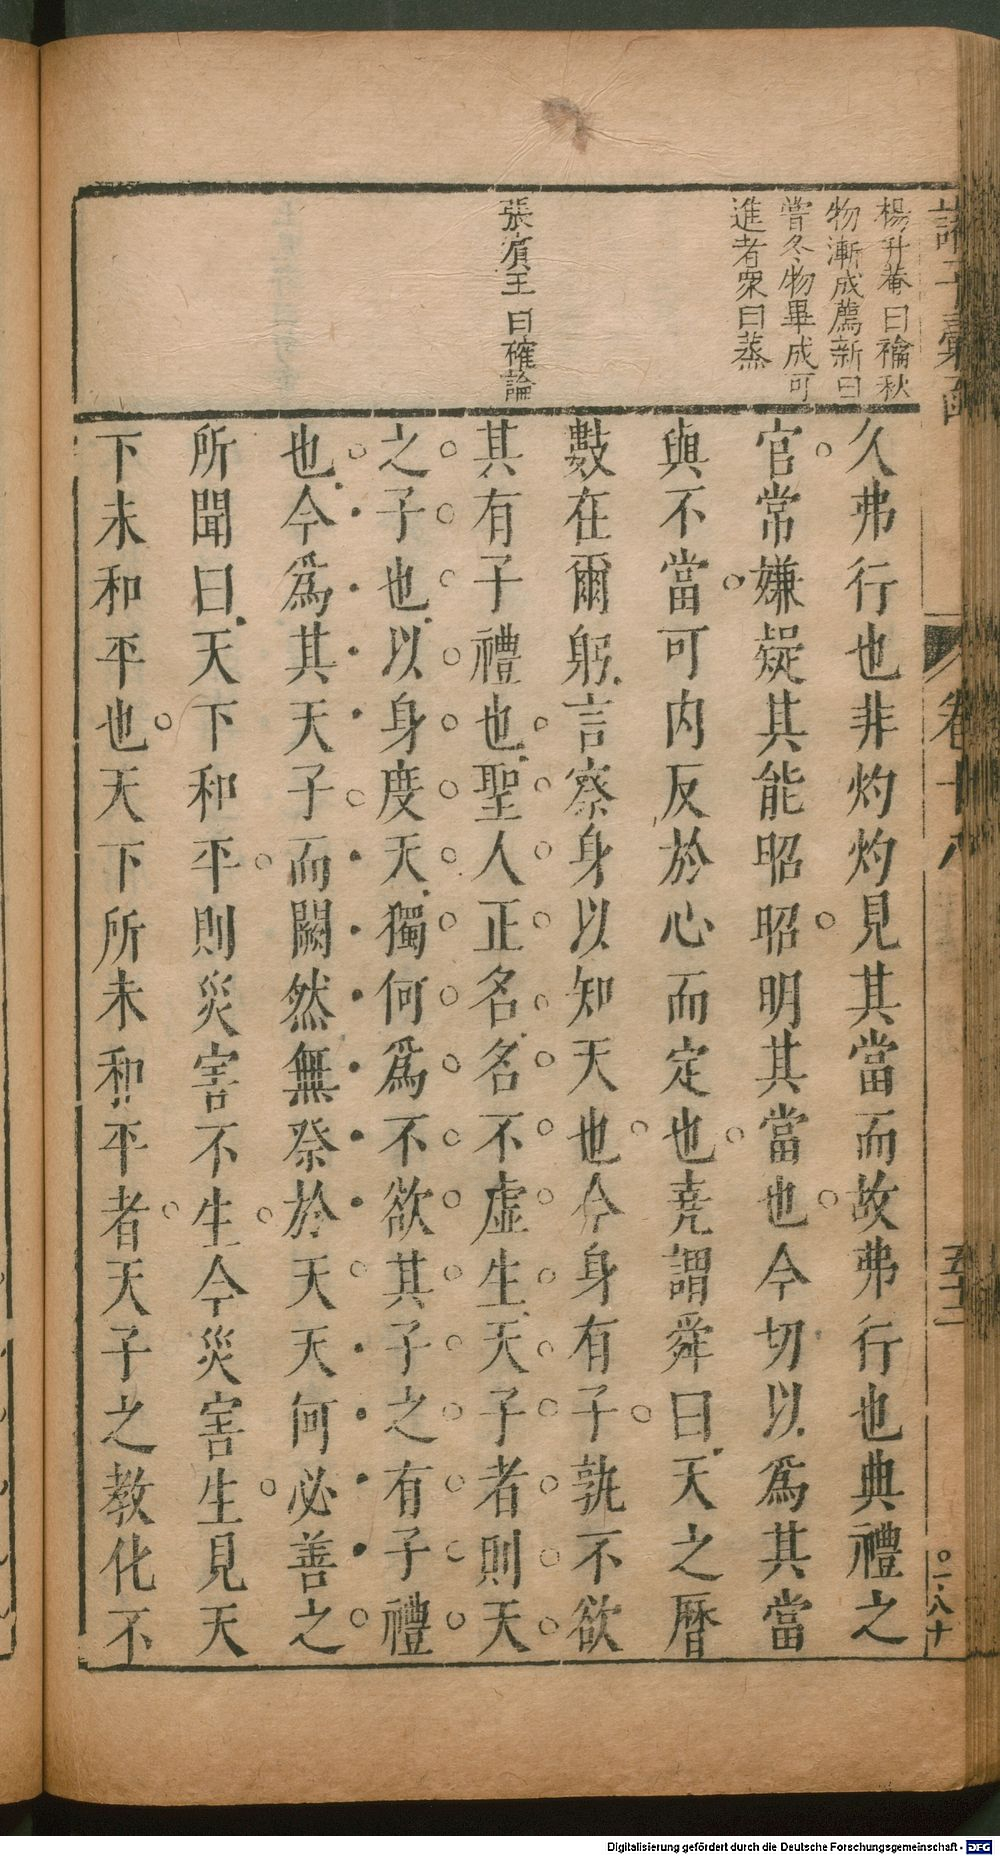 楊升菴曰禴秋
物漸成薦新曰
嘗冬物畢成可
進者衆曰蒸
張賓王曰確論
久弗行也非灼灼見其當而故弗行也典禮之
官常嫌疑其能昭昭明其當也今切以爲其當
與不當可内反於心而定也堯謂舜曰天之曆
數在爾躬言察身以知天也今身有子孰不欲
其有子禮也聖人正名名不虛生天子者則天
之子也以身度天獨何爲不欲其子之有子禮
也今爲其天子而闕然無祭於天天何必善之
所聞曰天下和平則災害不生今災害生見天
下未和平也天下所未和平者天子之教化不
卷十八
Digitalisierung gefördert durch die Deutsche Forschungsgemeinschaft - DFG